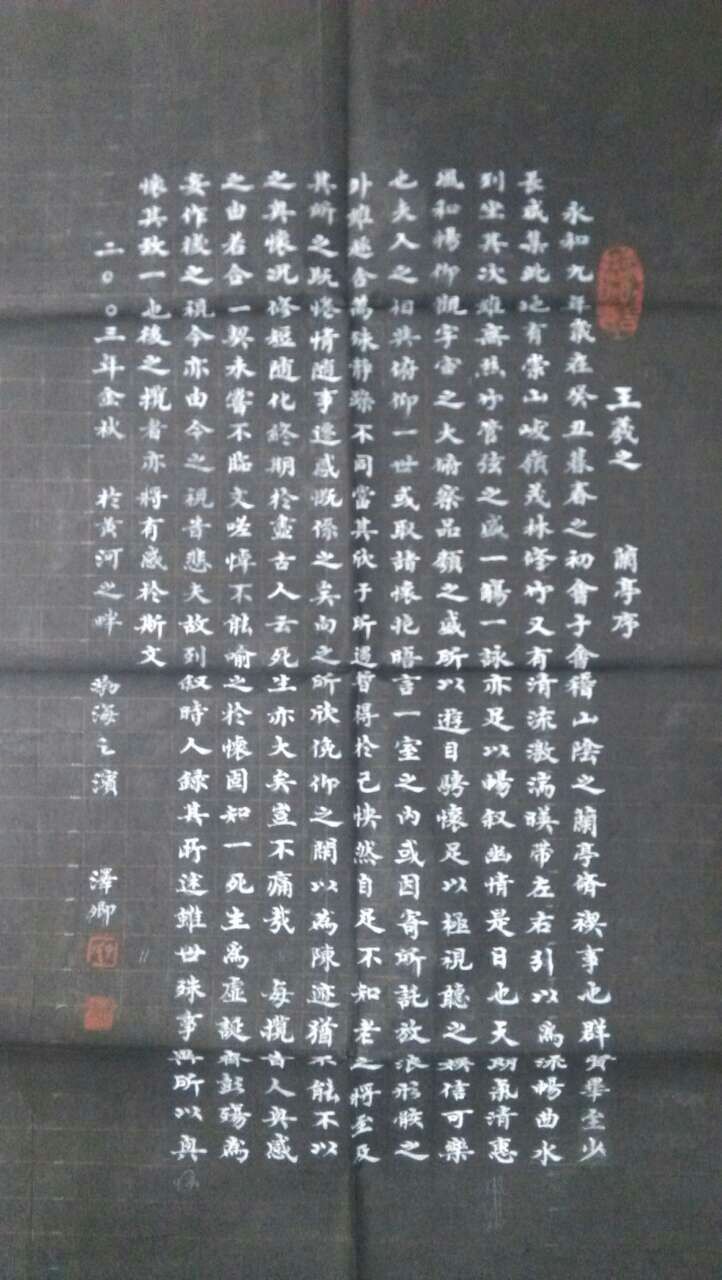 王羲之 蘭亭序
永和九年歲在癸丑暮春之初會于會稽山陰之蘭亭脩禊事也群賢畢至少
長咸集此地有崇山峻嶺茂林修竹又有清流激湍暎帶左右引以為流觴曲水
列坐其次雖無絲竹管弦之盛一觴一詠亦足以暢叙幽情是日也天朗氣清惠
風和暢仰觀宇宙之大俯察品類之盛所以遊目騁懷足以極視聽之娛信可樂
也夫人之相與俯仰一世或取諸懷抱晤言一室之內或因寄所託放浪形骸之
外雖趣舍萬殊靜躁不同當其欣于所遇暫得於己快然自足不知老之將至及
其所之既惓情隨事遷感慨係之矣向之所欣俛仰之間以為陳迹猶不能不以
之興懷況修短隨化終期於盡古人云死生亦大矣豈不痛哉 每攬昔人興感
之由若合一契未嘗不臨文嗟悼不能喻之於懷固知一死生為虛誕齊彭殤為
妄作後之視今亦由今之視昔悲夫故列叙時人録其所述雖世殊事異所以興
懷其致一也後之攬者亦將有感於斯文
二〇〇三年金秋 於黄河之畔 渤海之濱 澤卿